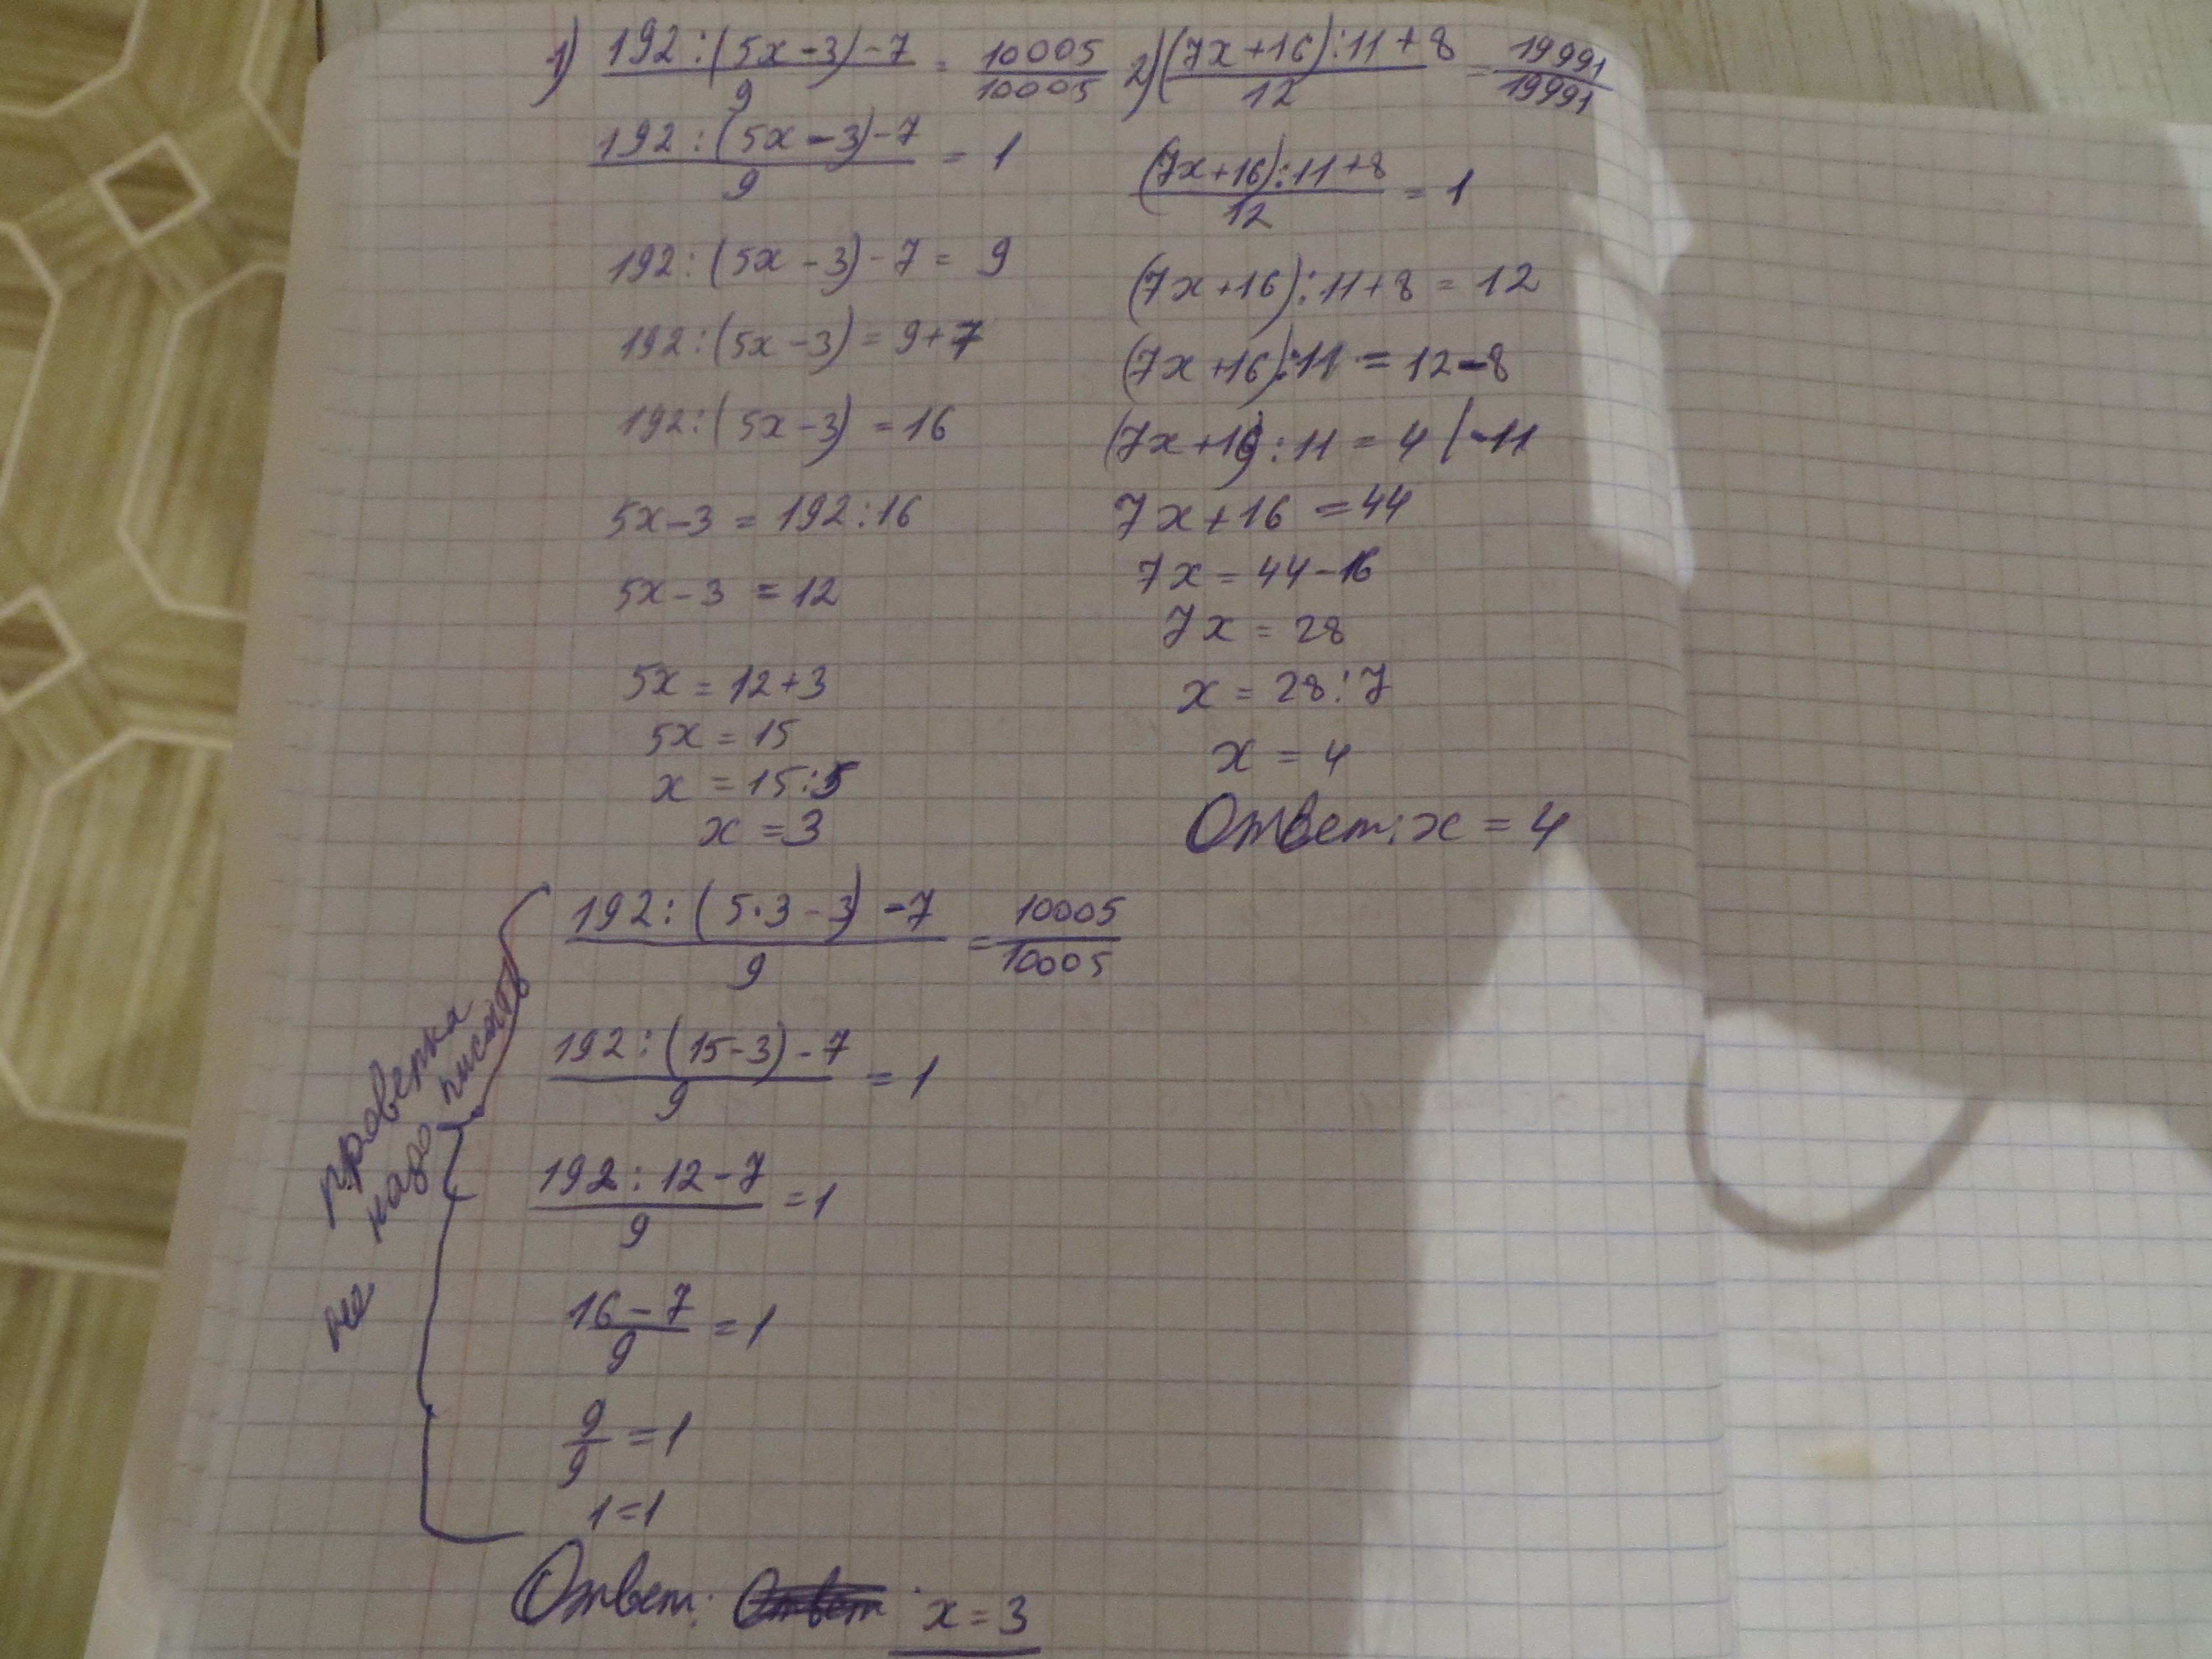 1) 192:(5x-3)-7 / 9 = 10005 / 10005
192:(5x-3)-7 / 9 = 1
192:(5x-3)-7 = 9
192:(5x-3) = 9+7
192:(5x-3) = 16
5x-3 = 192:16
5x-3 = 12
5x = 12+3
5x = 15
x = 15:5
x = 3
192:(5·3-3)-7 / 9 = 10005 / 10005
192:(15-3)-7 / 9 = 1
192:12-7 / 9 = 1
16-7 / 9 = 1
9 / 9 = 1
1=1
Ответ: x=3
проверка
не надо писать
2) (7x+16):11+8 / 12 = 19991 / 19991
(7x+16):11+8 / 12 = 1
(7x+16):11+8 = 12
(7x+16):11 = 12-8
(7x+16):11 = 4 |·11
7x+16 = 44
7x = 44-16
7x = 28
x = 28:7
x = 4
Ответ: x = 4